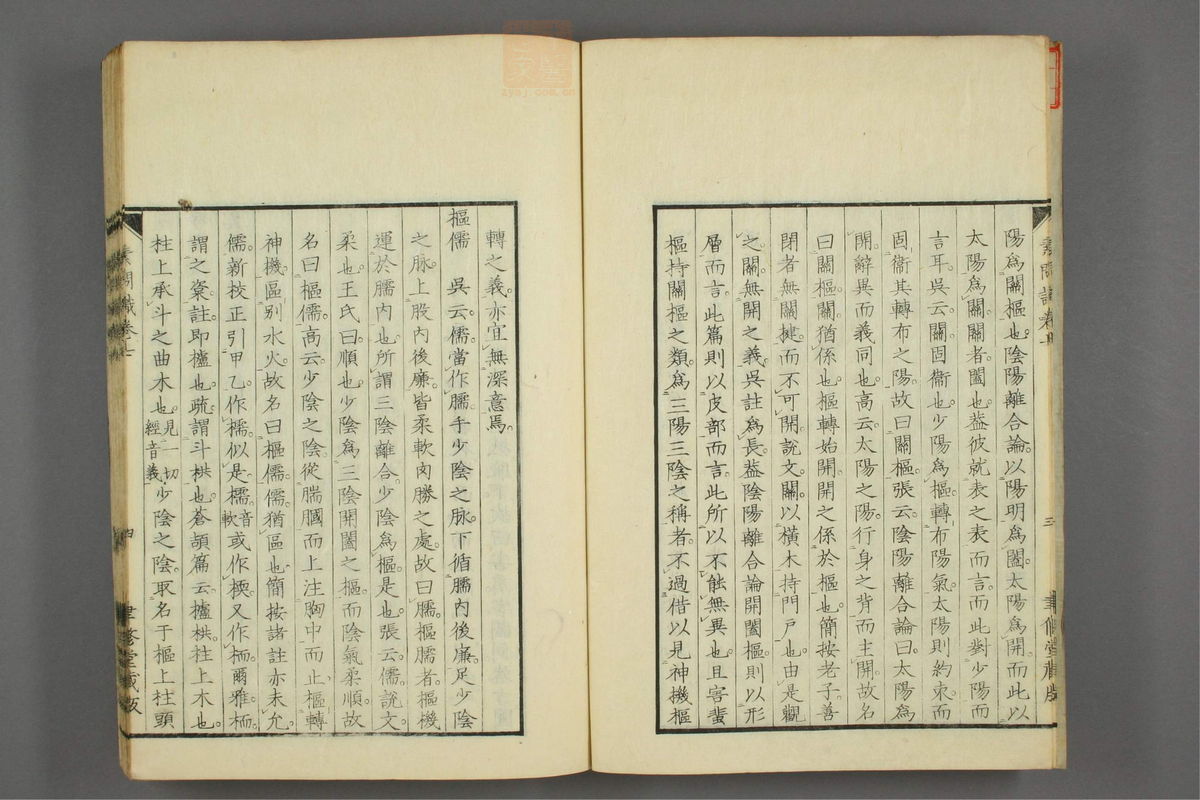 陽爲關樞也陰陽離合論以陽明爲闔太陽爲開而此以
太陽爲關關者闔也蓋彼就表之表而言而此對少陽而
言耳吳云關固衞也少陽爲樞轉布陽氣太陽則約束而
固衞其轉布之陽故曰關樞張云陰陽離合論曰太陽爲
開辭異而義同也高云太陽之陽行身之背而主開故名
曰關樞關猶係也樞轉始開開之係於樞也簡按老子善
閉者無關揵而不可開說文關以橫木持門戶也由是觀
之關無開之義吳註爲長蓋陰陽離合論開闔樞則以形
層而言此篇則以皮部而言此所以不能無異也且害蜚
樞持關樞之類爲三陽三陰之稱者不過借以見神機樞
轉之義亦宜無深意焉
樞儒 吳云儒當作臑手少陰之脉下循臑內後廉足少陰
之脉上股內後廉皆柔軟肉勝之處故曰臑樞臑者樞機
運於臑內也所謂三陰離合少陰爲樞是也張云儒說文
柔也王氏曰順也少陰爲三陰開闔之樞而陰氣柔順故
名曰樞儒高云少陰之陰從腨膕而上注胸中而止樞轉
神機區別水火故名曰樞儒儒猶區也簡按諸註亦未允
儒新校正引甲乙作檽似是檽音軟或作檽又作栭爾雅栭
謂之楶註即櫨也疏謂斗栱也蒼頡篇云櫨栱柱上木也
柱上承斗之曲木也見一切經音義少陰之陰取名于樞上柱頭
素問識卷七
四
聿修堂藏版
三
聿修堂藏版